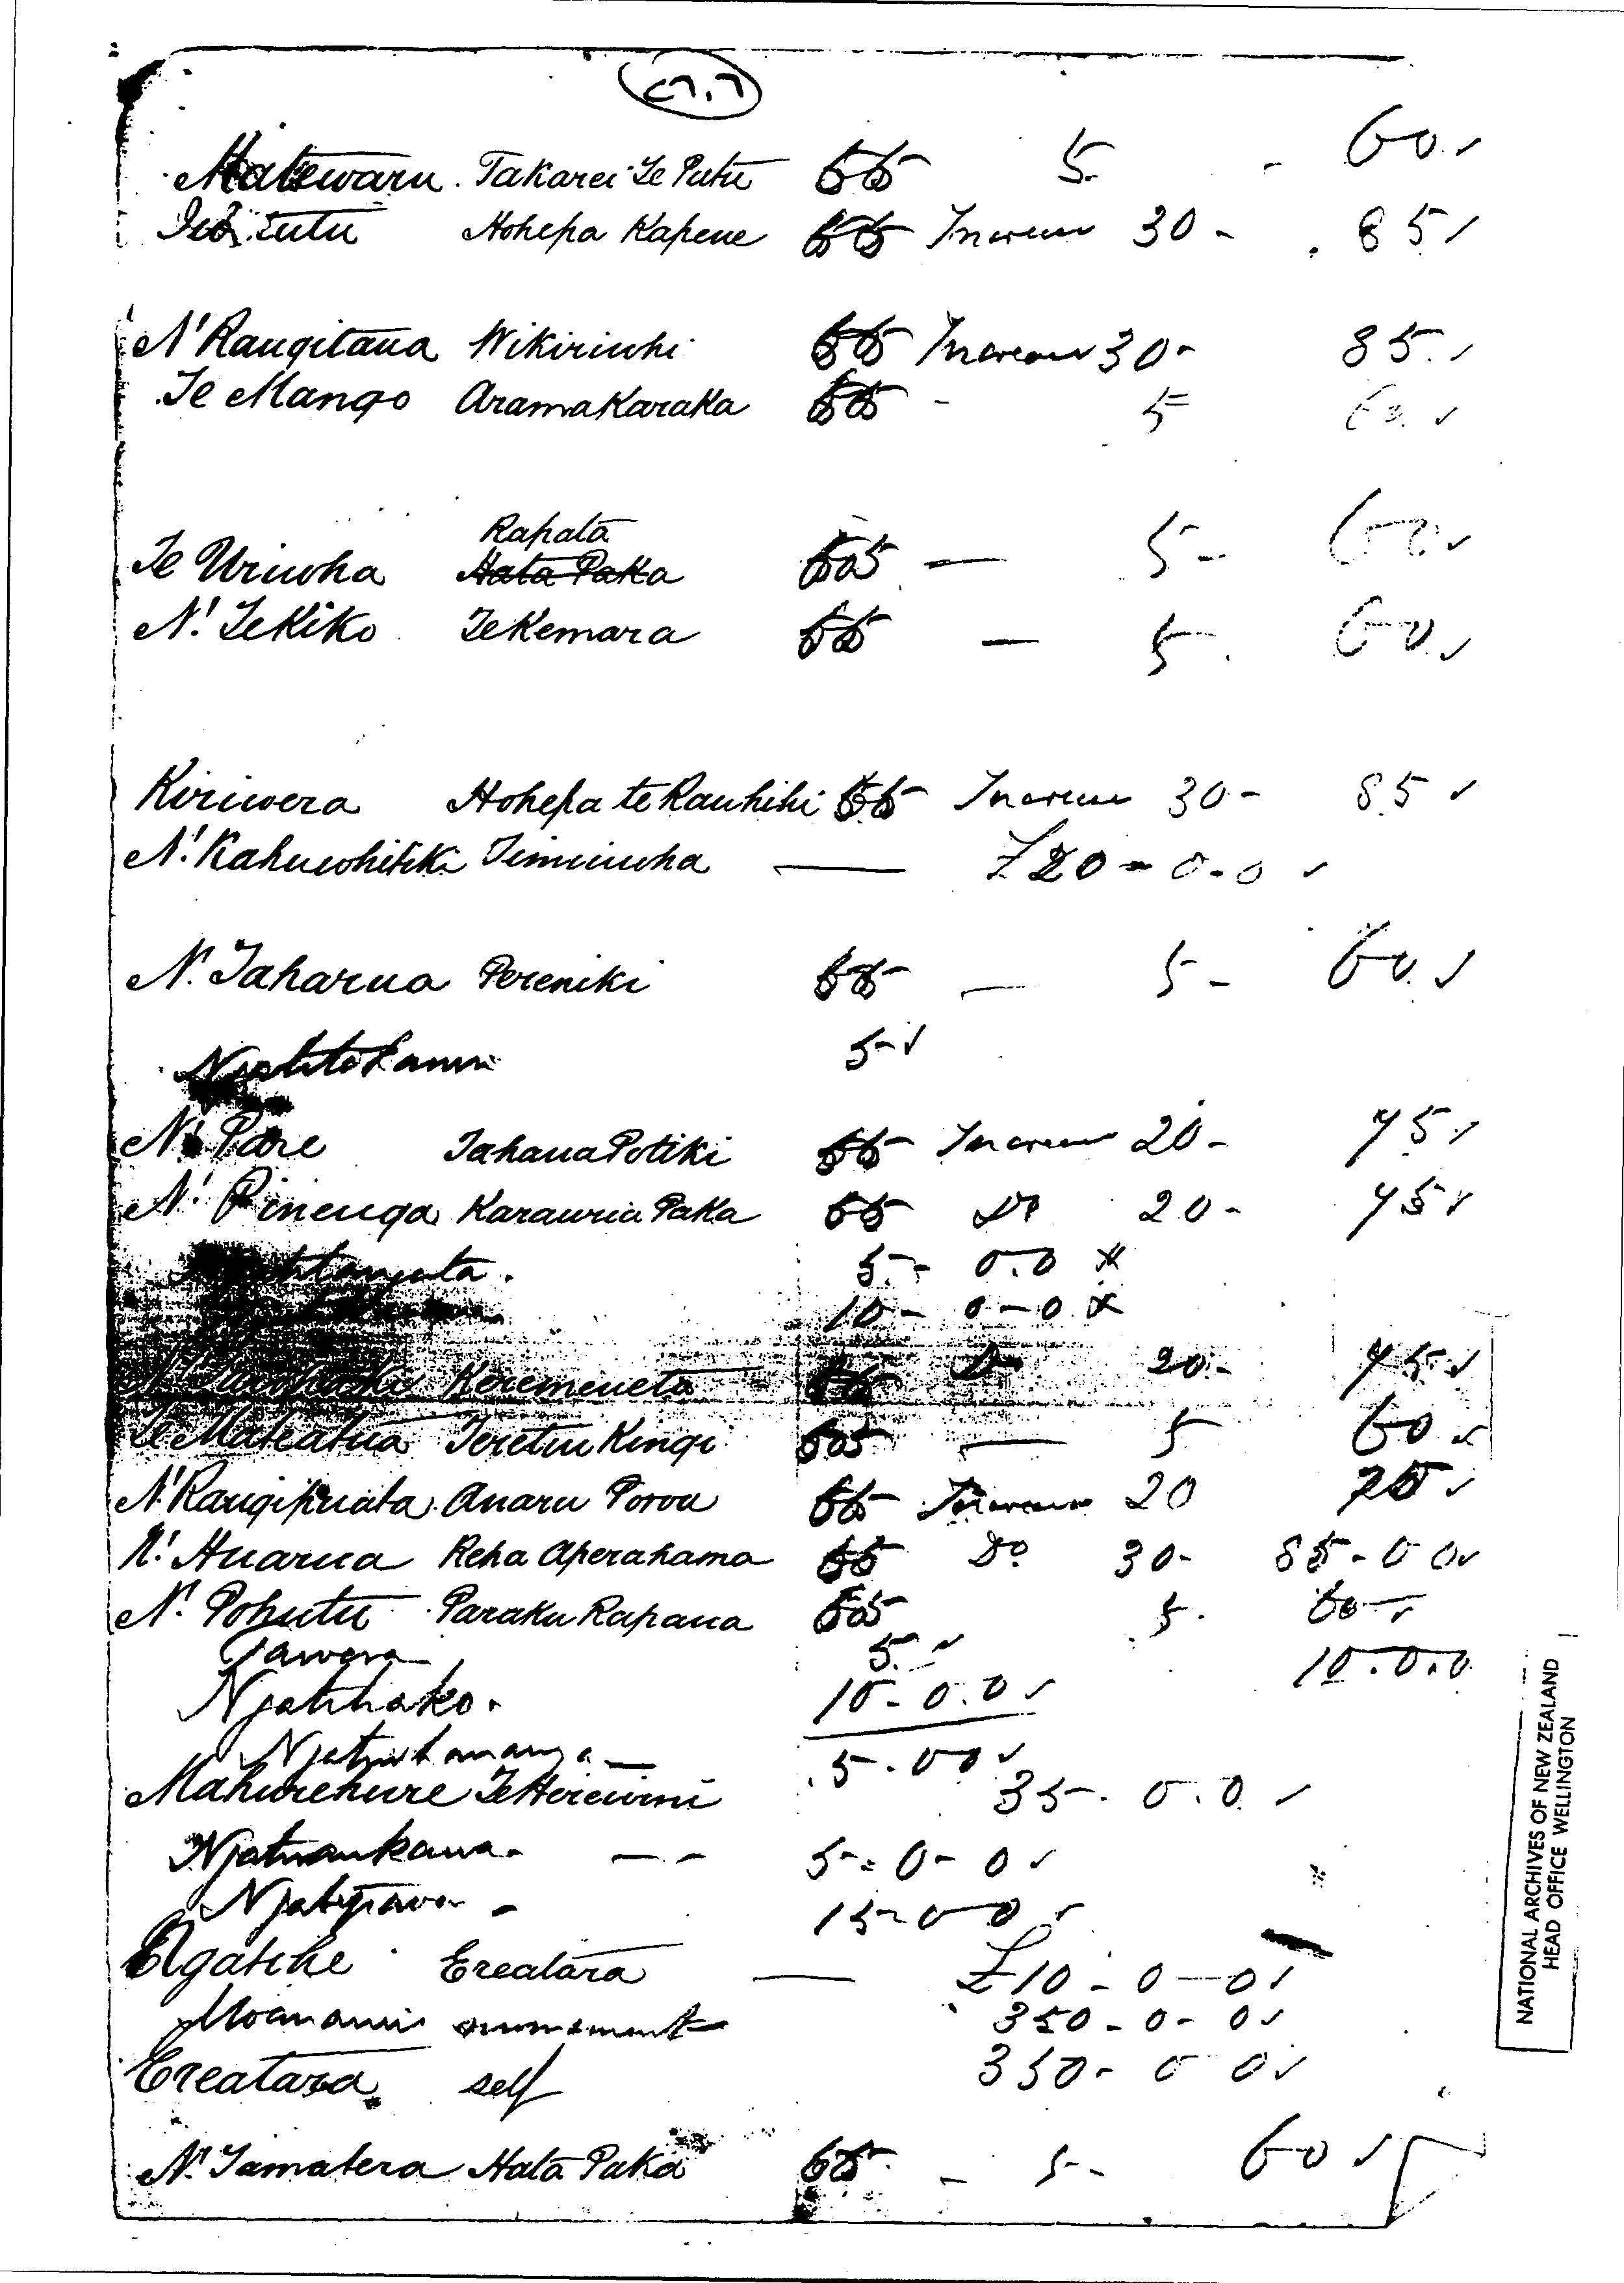 Matewaru. Takarei Te Putu 55 5. - 60. ✓
tutu Hohepa Kapene 55 Increase 30 - 85 ✓
N' Rangitaua Wikiriwhi 55 Increase 30 - 85. ✓
Te Mango Aramakaraka 55 - 5 60. ✓
Rapata
Te Uriwha Hata Paka 55 — 5 - 60. ✓
N! Te Kiko Te Kemara 55 — 5. 60. ✓
Kiriwera Hohepa te Rauhihi 55 Increase 30 - 85 ✓
N! Kahuwhitiki — £20 - 0 - 0 ✓
N. Taharua Pereniki 55 — 5 - 60. ✓
5 - ✓
N! Pare Tahana Potiki 55 Increase 20 - 75 ✓
N! Pinenga Karauria Paka 55 Do 20 - 75 ✓
5. - 0.0 x
10 - 0 - 0 x
Keremeneta 55 Do 20. - 75. ✓
Te Mateatua Teretiu Kingi 55 — 5 60 ✓
N! Rangipuata. Anaru Poroa 55 Increase 20 75 ✓
N! Huarua Reha Aperahama 55 Do 30 - 85 - 0 0 ✓
N. Pohutu Paraku Rapana 55 5. 60 - ✓
Tawera 5. - ✓ 10.0.0
Ngatihako. 10 - 0.0 ✓
5.00 ✓
Mahurehure Te Hereiwini 35 - 0.0. ✓
5 - 0 - 0 ✓
15 - 0 0 ✓
Ngatihe Ereatara — £10 - 0 - 0 ✓
monument 350 - 0 - 0 ✓
Ereatara self 350 - 0 0 ✓
N. Tamatera Hata Paka 55 - 5 - 60 ✓
NATIONAL ARCHIVES OF NEW ZEALAND
HEAD OFFICE WELLINGTON